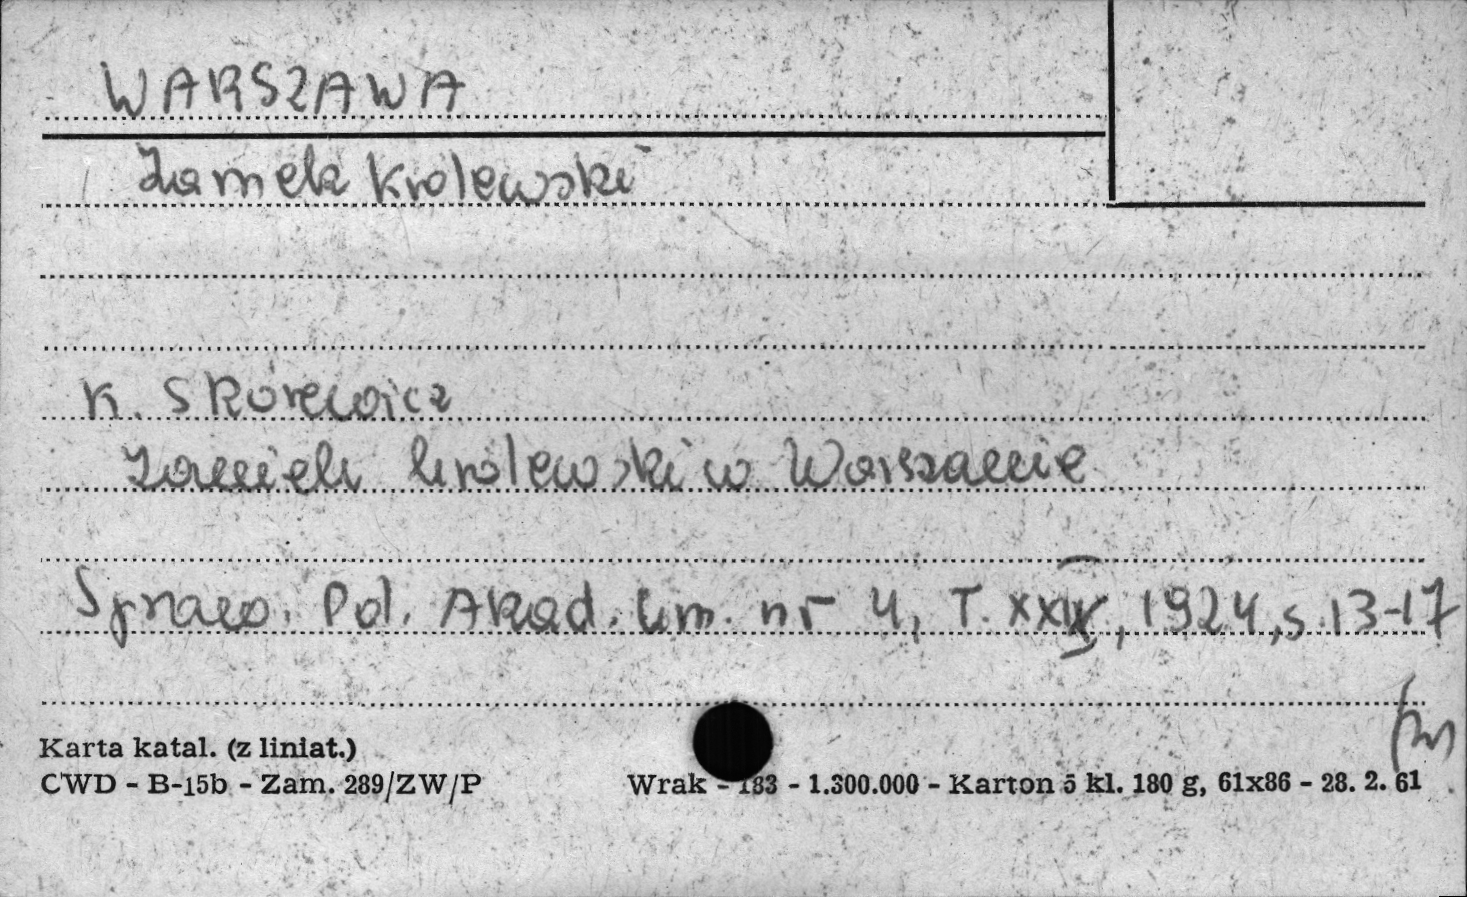 WARSZAWA
Zamek Królewski
K. Skórewicz
Zamek królewski w Warszawie
Sprawo. Pol. Akad. Um. nr 4, T. XXIX, 1924, s. 13-17
Karta katal. (z liniat.)
CWD - B-15b - Zam. 289/ZW/P
Wrak - 183 - 1.300.000 - Karton 5 kl. 180 g, 61x86 - 28. 2. 61